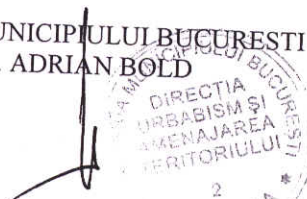 UNICIPIULUI BUCURESTI
. ADRIAN BOLD
MUNICIPIULUI BUCUREȘTI
DIRECTIA
URBABISM ȘI
AMENAJAREA
TERITORIULUI
2